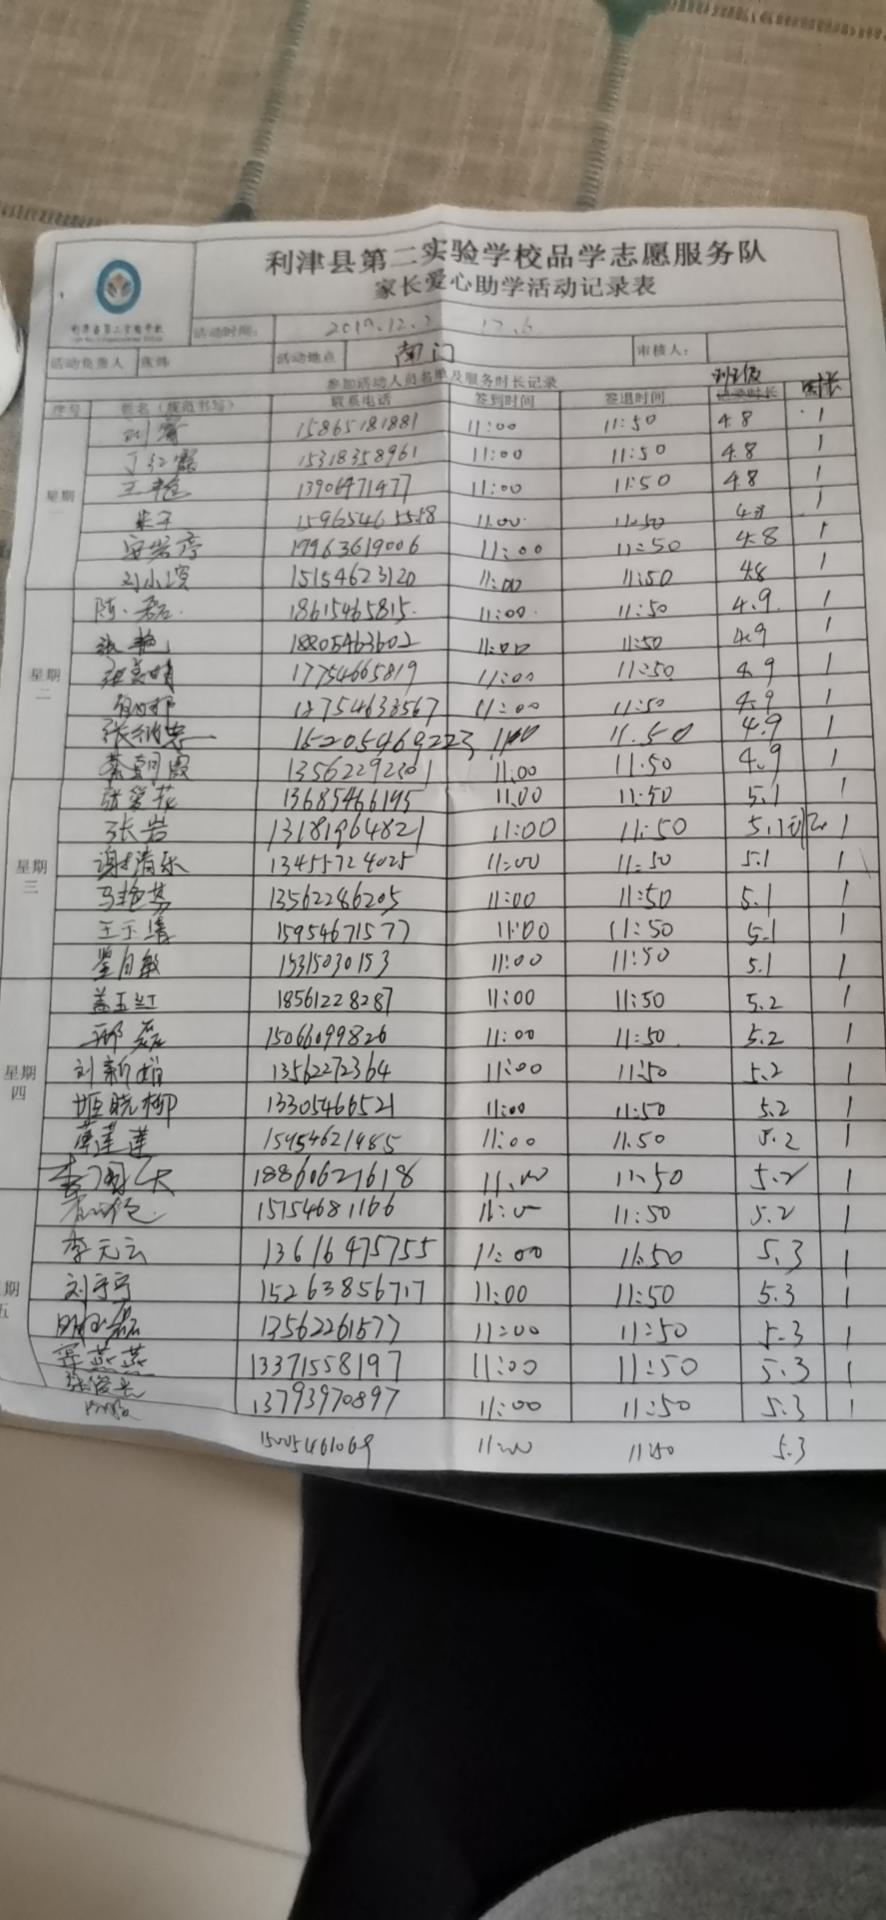 利津县第二实验学校品学志愿服务队
家长爱心助学活动记录表
利津县第二实验学校
活动时间： 2019.12.2 — 12.6
活动负责人 活动地点 南门 审核人：
参加活动人员名单及服务时长记录 班级
序号 姓名（规范书写） 联系电话 签到时间 签退时间 记录时长 时长
15865181881 11:00 11:50 4.8 1
丁红霞 15318358961 11:00 11:50 4.8 1
星期一 王艳 13906471477 11:00 11:50 4.8 1
11:00 11:50 4.8 1
19963619006 11:00 11:50 4.8 1
15154623120 11:00 11:50 4.8 1
陈磊 18615465815 11:00 11:50 4.9 1
张艳 18805463602 11:00 11:50 4.9 1
星期二 17754665819 11:00 11:50 4.9 1
11:00 11:50 4.9 1
15205469223 11:00 11:50 4.9 1
11:00 11:50 4.9 1
张爱花 13685466195 11:00 11:50 5.1 1
张岩 13181964821 11:00 11:50 5.1 1
星期三 谢清乐 13455724025 11:00 11:50 5.1 1
马艳芬 13562286205 11:00 11:50 5.1 1
王玉清 15954671577 11:00 11:50 5.1 1
15315030153 11:00 11:50 5.1 1
盖玉红 18561228287 11:00 11:50 5.2 1
邢磊 15066099826 11:00 11:50 5.2 1
星期四 刘新娟 13562272364 11:00 11:50 5.2 1
姬晓柳 13305466521 11:00 11:50 5.2 1
薄莲莲 15954621485 11:00 11:50 5.2 1
18860621618 11:00 11:50 5.2 1
15754681166 11:00 11:50 5.2 1
李元云 13616475755 11:00 11:50 5.3 1
期五 刘宁宁 15263856717 11:00 11:50 5.3 1
13562261577 11:00 11:50 5.3 1
燕燕 13371558197 11:00 11:50 5.3 1
张俊 13793970897 11:00 11:50 5.3 1
15005461069 11:00 11:50 5.3